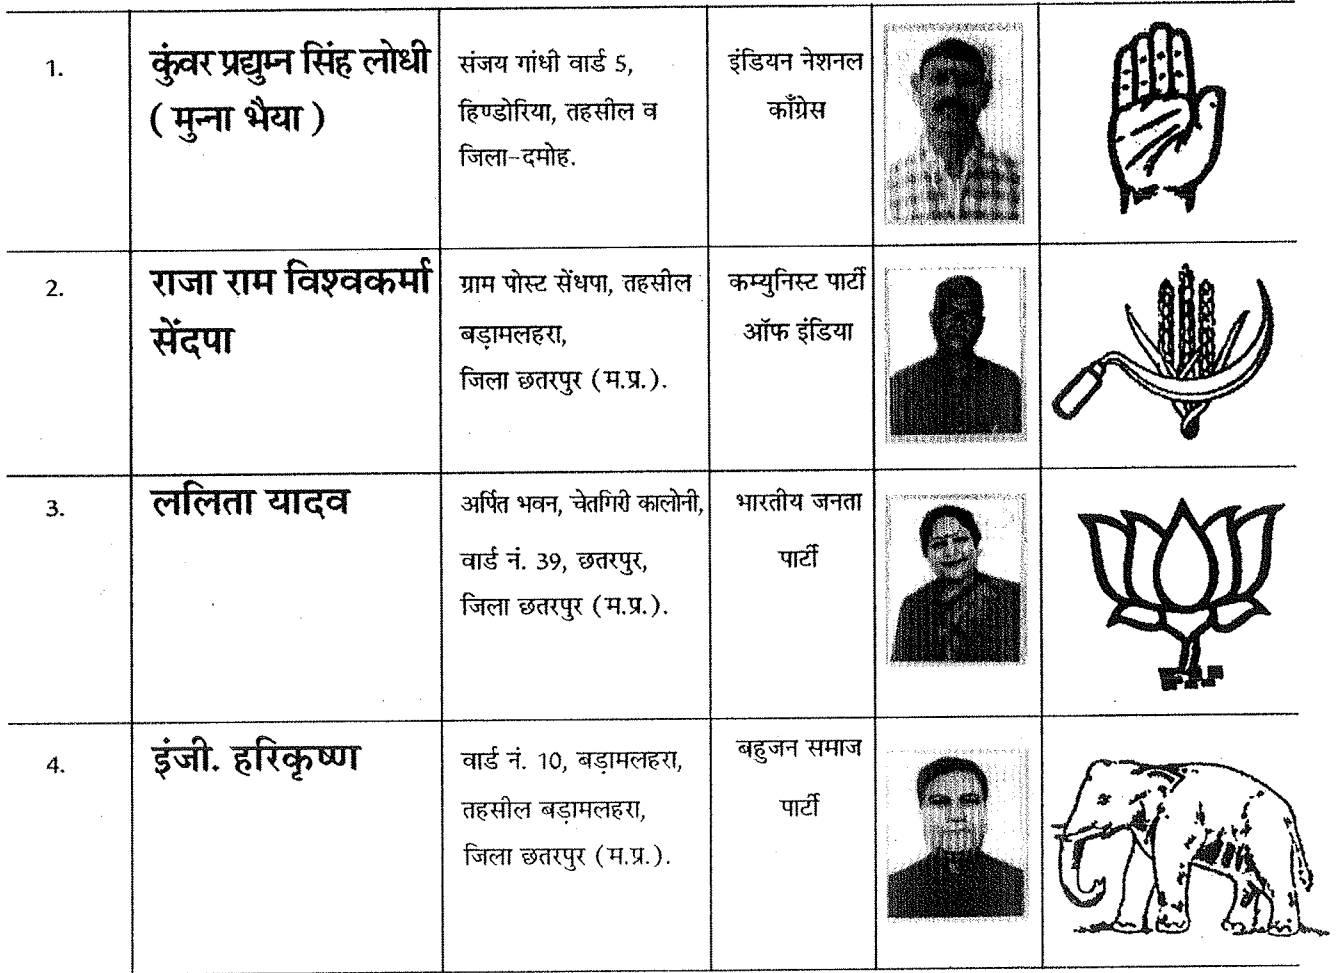 1.
कुंवर प्रद्युम्न सिंह लोधी
( मुन्ना भैया )
संजय गांधी वार्ड 5,
हिण्डोरिया, तहसील व
जिला-दमोह.
इंडियन नेशनल
काँग्रेस
2.
राजा राम विश्वकर्मा
सेंदपा
ग्राम पोस्ट सेंधपा, तहसील
बड़ामलहरा,
जिला छतरपुर (म.प्र.).
कम्युनिस्ट पार्टी
ऑफ इंडिया
3.
ललिता यादव
अर्पित भवन, चेतगिरी कालोनी,
वार्ड नं. 39, छतरपुर,
जिला छतरपुर (म.प्र.).
भारतीय जनता
पार्टी
4.
इंजी. हरिकृष्ण
वार्ड नं. 10, बड़ामलहरा,
तहसील बड़ामलहरा,
जिला छतरपुर (म.प्र.).
बहुजन समाज
पार्टी